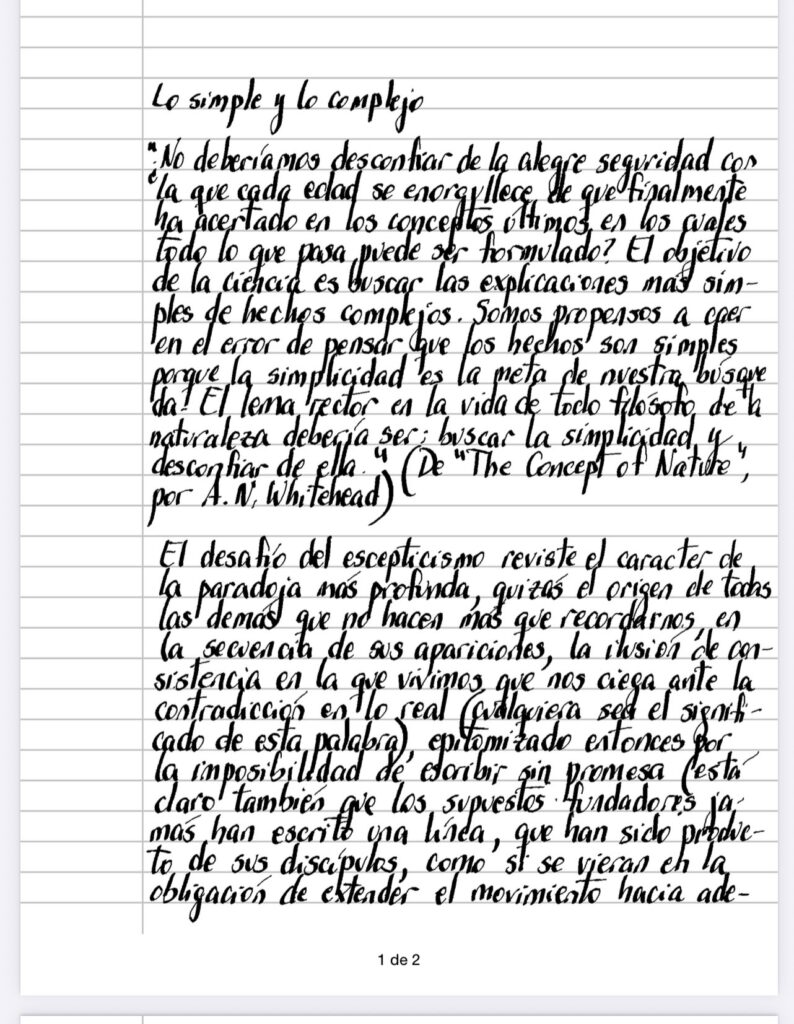 Lo simple y lo complejo
"¿No deberíamos desconfiar de la alegre seguridad con
la que cada edad se enorgullece de que finalmente
ha acertado en los conceptos últimos en los cuales
todo lo que pasa puede ser formulado? El objetivo
de la ciencia es buscar las explicaciones más sim-
ples de hechos complejos. Somos propensos a caer
en el error de pensar que los hechos son simples
porque la simplicidad es la meta de nuestra búsque
da. El lema rector en la vida de todo filósofo de la
naturaleza debería ser: buscar la simplicidad y
desconfiar de ella." (De "The Concept of Nature",
por A. N. Whitehead)
El desafío del escepticismo reviste el caracter de
la paradoja más profunda, quizás el origen de todas
las demás que no hacen más que recordarnos, en
la secuencia de sus apariciones, la ilusión de con-
sistencia en la que vivimos que nos ciega ante la
contradicción en lo real (cualquiera sea el signifi-
cado de esta palabra), epitomizado entonces por
la imposibilidad de escribir sin promesa (está
claro también que los supuestos fundadores ja-
más han escrito una línea, que han sido produc-
to de sus discípulos, como si se vieran en la
obligación de extender el movimiento hacia ade-
1 de 2